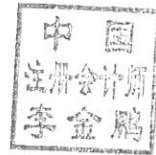 中国
注册会计师
李金鹏